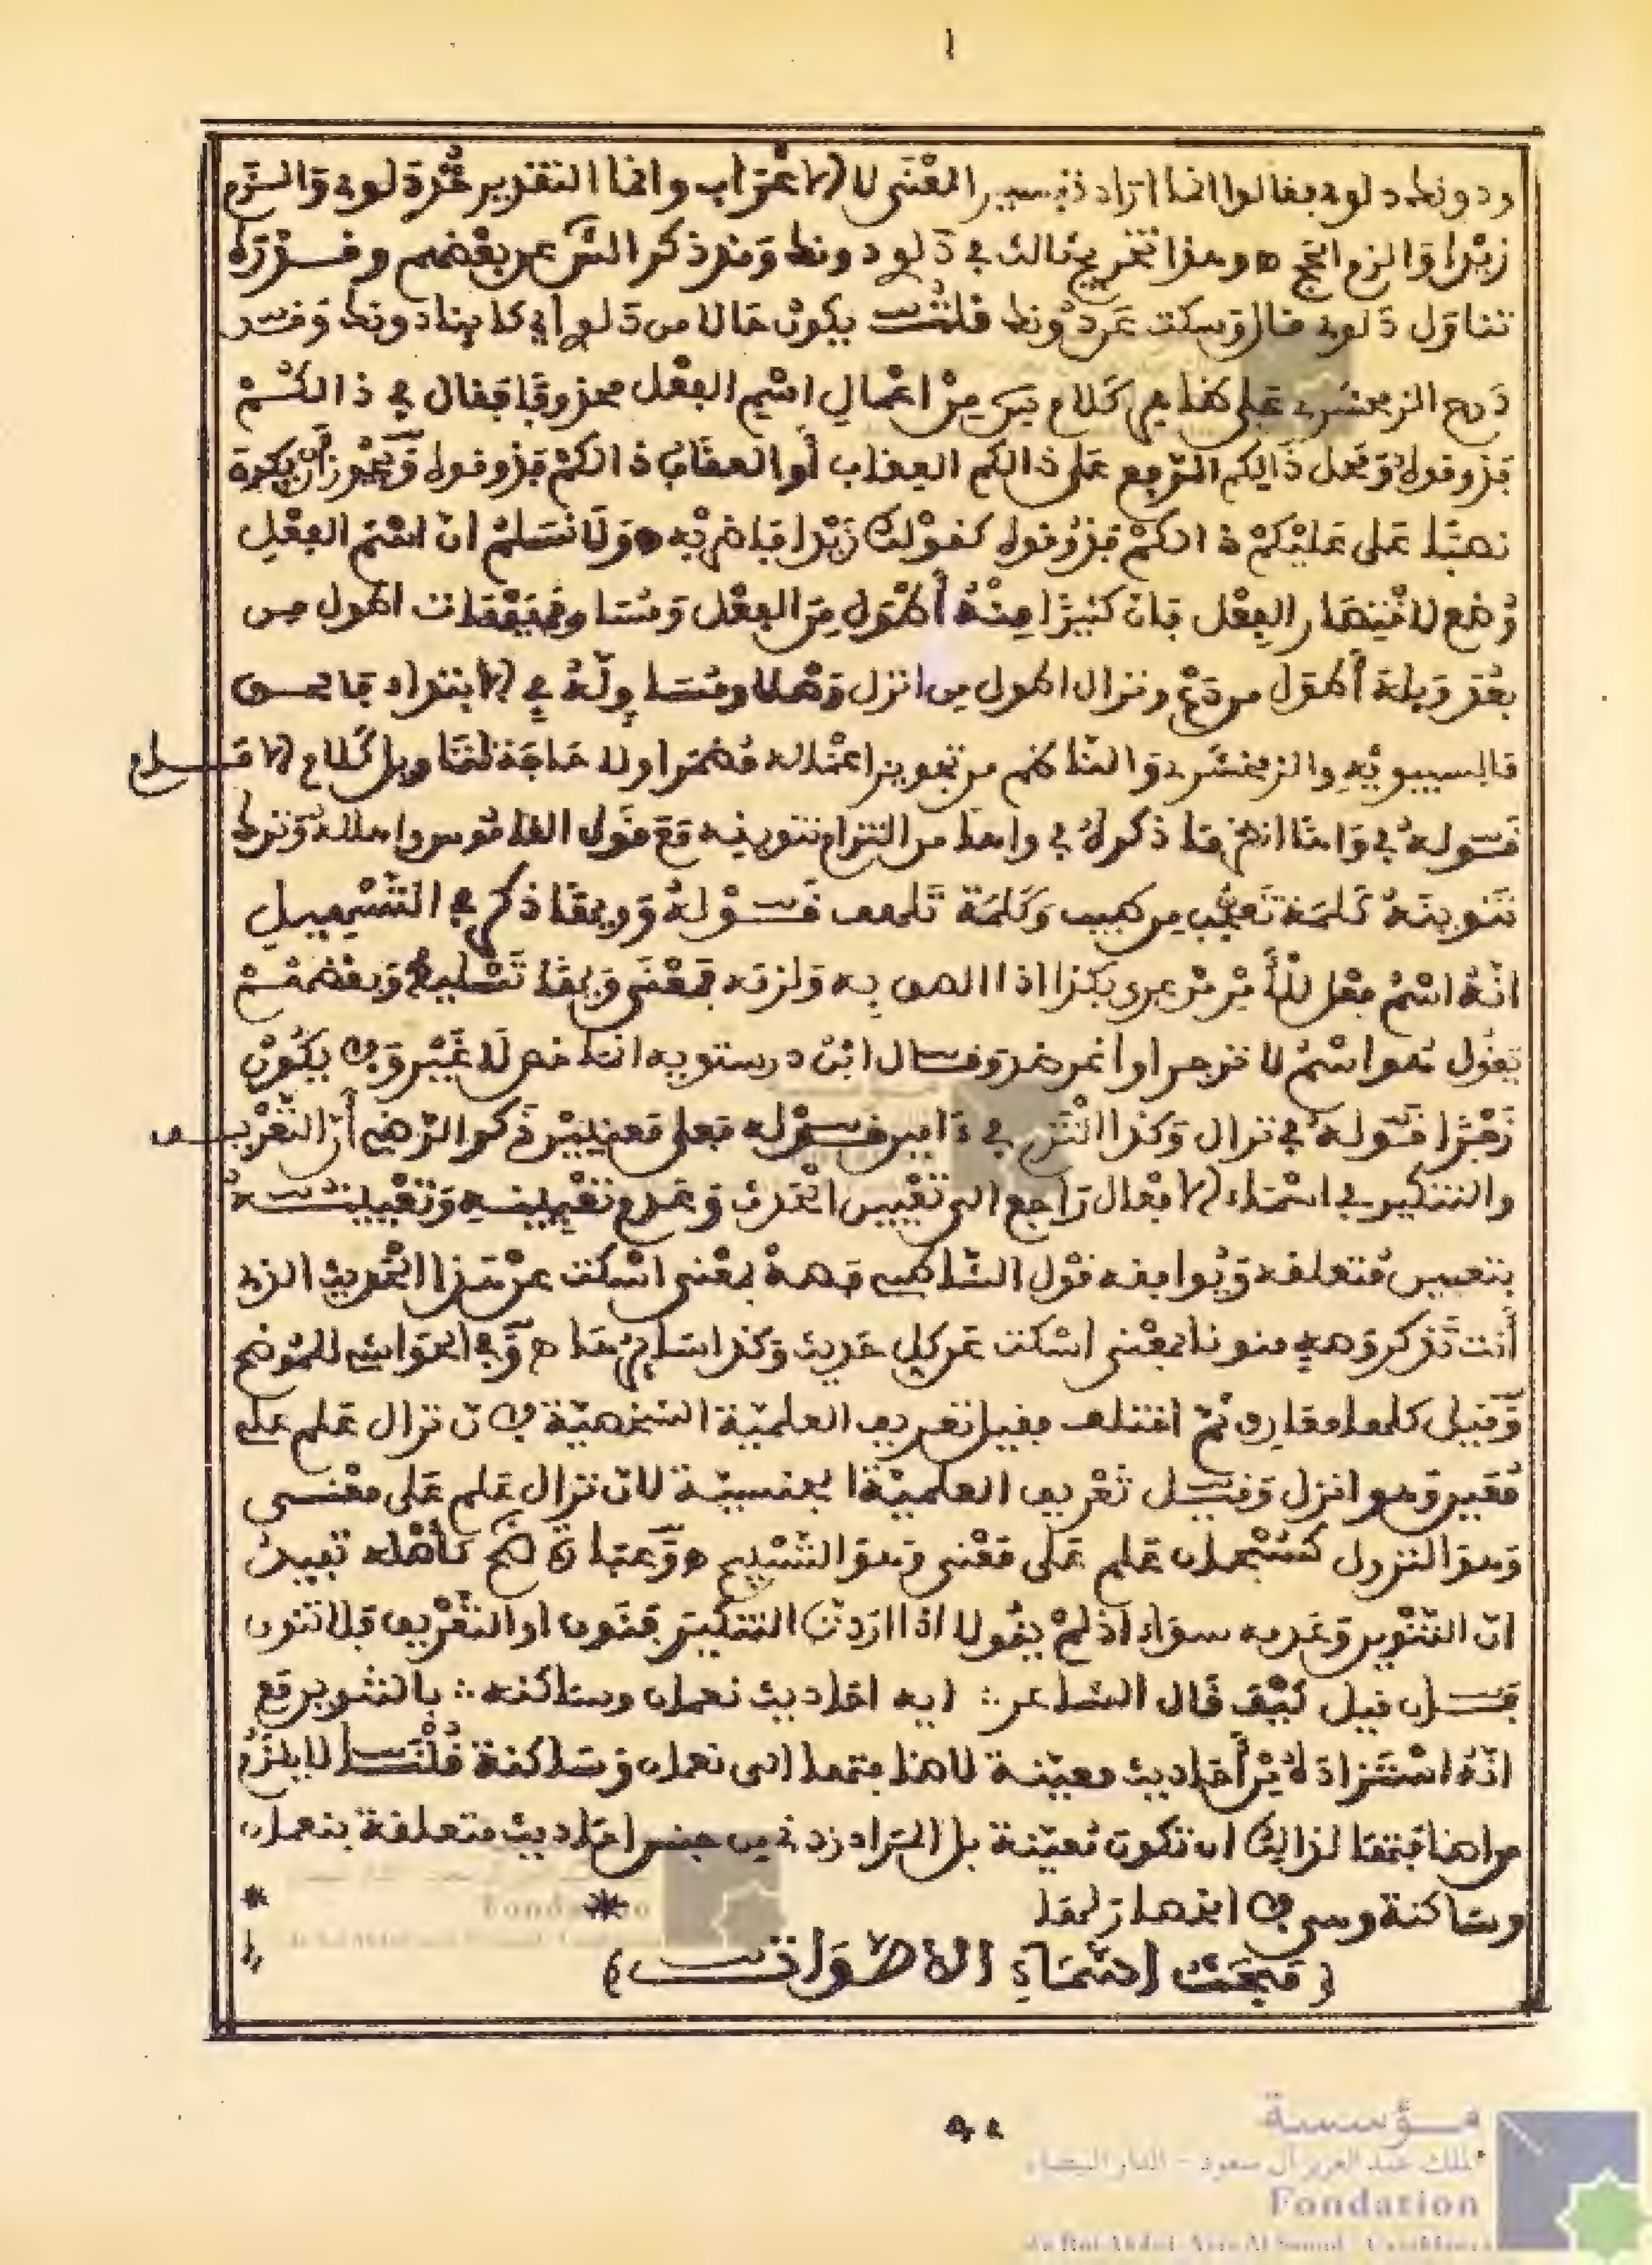 ا
ودونك دلوي فقالوا انما اراد تفسير المعنى لا الاعراب وانما التقدير خذ دلوي والزم
زيدا والزم الحج ه وهذا تخريج ثالث في دلو دونك وقد ذكر الش عن بعضهم وقدره
تناول دلوي قال وسكت عن دونك قلت يكون حالا من دلو اي كاينا دونك وقد
درج الزمخشري على ظاهر كلام س من اعمال اسم الفعل محذوفا فقال في ذالكم
فذوقوه ومحل ذالكم الرفع على ذالكم العذاب أو العقاب ذالكم فذوقوه ويجوز أن يكون
نصبا على عليكم ذالكم فذوقوه كقولك زيدا فاضربه ه ولا نسلم ان اسم الفعل
وضع لاختصار الفعل فان كثيرا منه أطول من الفعل ومساو فهيهات اطول من
بعد وبله أطول من دع ونزال اطول من انزل وهلا ومساو له في الابتداء فالحق
قال سيبويه والزمخشري والناظم من تجويز اعماله مضمرا ولا حاجة لتاويل كلام الامام
قوله في واها انظر ما ذكره في واها من التزام تنوينه مع قول القاموس واها له وترك
تنوينه كلمة تعجب من طيب وكلمة تلهف قوله وويها ذكر في التسهيل
انه اسم فعل للأمر من غرى بكذا اذا الصق به ولزمه فمعنى ويها تسليه وبعضهم
يقول هو اسم لا تزجر او اغر وقال ابن درستويه انه خص لا غير ولا يكون
زجرا قوله في نزال وكذا النثر في ءامين قوله فعلى معنيين ذكر الرضي أن التعريف
والتنكير في اسماء الافعال راجع الى تعيين الحدث وعدم تعيينه وتعيينه
بتعيين متعلقه ويوافقه قول الشاطبي وصه بمعنى اسكت عن هذا الحديث الذي
أنت تذكر وصه منونا بمعنى اسكت عن كل حديث وكذا سايرها ه وفي الحواشي للموضح
وقيل كلها معارف ثم اختلف فقيل تعريف العلمية الشخصية لان نزال علم على
معين وهو انزل وقيل تعريف العلمية الجنسية لان نزال علم على معنى
وهو النزول كسبحان علم على معنى وهو التسبيح ه
ان التنوين وعدمه سواء اذ لم يقولا اذا اردت التنكير فنون او التعريف فلا تنون
فان قيل كيف قال الشاعر ∴ ايه احاديث نعمان وساكنه ∴ بالتنوين مع
انه استزاده من أحاديث معينة لاضافتها الى نعمان وساكنه قلت لا يلزم
من اضافتها لذالك ان تكون معينة بل المراد زدني من جنس احاديث متعلقة بنعمان
وساكنه
* *
(مبحث اسماء الاصوات)
مؤسسة
الملك عبد العزيز آل سعود - الدار البيضاء
Fondation
du Roi Abdul-Aziz Al Saoud - Casablanca